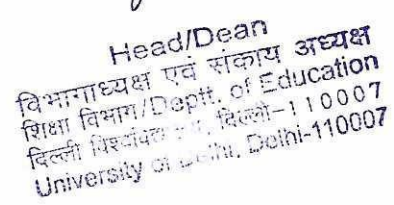 Head/Dean
विभागाध्यक्ष एवं संकाय अध्यक्ष
शिक्षा विभाग/Deptt. of Education
दिल्ली दिल्ली-110007
University of Delhi, Delhi-110007